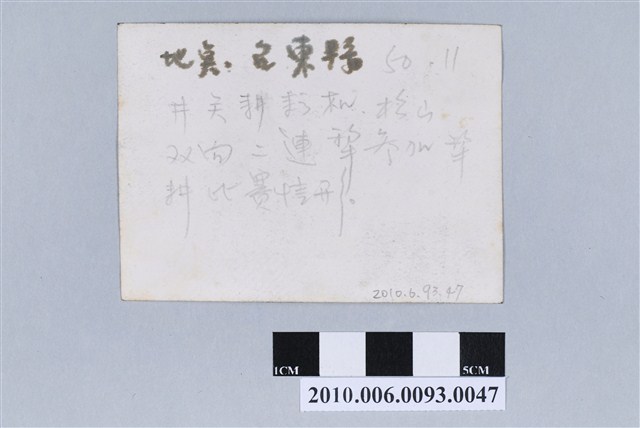 地點：台東縣 50.11
井关耕耘机.松山
双向二連犁参加犂
耕比賽情形。
2010.6.93.47
1CM 5CM
2010.006.0093.0047